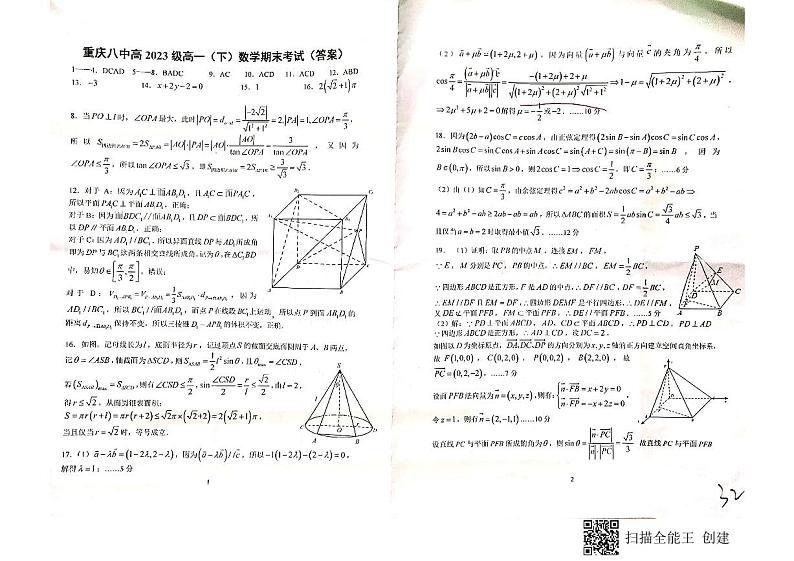 重庆八中高 2023 级高一（下）数学期末考试（答案）
1——4. DCAD 5——8. BADC 9. AC 10. ACD 11. ACD 12. ABD
13. −3 14. x+y−2=0 15. 1 16. 2(√2+1)π
8. 当PO⊥l时，∠OPA最大，此时|PO|=d_{O-l}=|−2√2|/√(1²+1²)=2,|PA|=1,∠OPA=π/3,
所以 =2S_{△OPA}=|AO|·|PA|=|AO|·|AO|/tan∠OPA=3/tan∠OPA，又因为
∠OPA≤π/3，所以tan∠OPA≤√3，即 =2S_{△OPA}≥3/√3=√3.
12. 对于 A：因为A₁C⊥面AB₁D₁，且A₁C⊂面PA₁C，
所以平面PA₁C⊥平面AB₁D₁，正确；
对于B：因为面BDC₁//面AB₁D₁，且DP⊂面BDC₁，所
以DP//平面AB₁D₁，正确；
对于C：因为AD₁//BC₁，所以异面直线DP与AD₁所成角
即为DP与BC₁这两条相交直线所成角，记为θ，在△C₁BD
中，易知θ∈[π/3,π/2]，错误；
对于D： ，因为
AD₁//BC₁，所以BC₁//面AB₁D₁，而点P在线段BC₁上运动，所以点P到面AB₁D₁的
距离 保持不变，所以三棱锥D₁−APB₁的体积不变，正确.
16. 如图，记母线长为l，底面半径为r，记过顶点S的截面交底面圆周于A、B两点，
记θ=∠ASB，轴截面为△SCD，则S_{△ASB}=1/2 l² sinθ，且θ_{max}=∠CSD，
若(S_{△ASB})_{max}=S_{△SCD}，则有∠CSD≤π/2，sin∠CSD/2=r/l≤√2/2，由l=2，
得r≤√2，从而圆锥表面积：
S=πr(r+l)=πr(r+2)≤√2π×(√2+2)=2(√2+1)π，
当且仅当r=√2时，等号成立.
17.（1）(a−λb)=(1−2λ,2−λ)，因为(a−λb)//c，所以−1(1−2λ)−(2−λ)=0，
解得λ=1；……5分
1
（2）a+μb=(1+2μ,2+μ)，因为向量(a+μb)与向量c的夹角为π/4，所以
cosπ/4=(a+μb)·c/(|a+μb||c|)=(−(1+2μ)+2+μ)/(√((1+2μ)²+(2+μ)²)√(1²+1²))⇒1−μ=√((1+2μ)²+(2+μ)²)，
⇒2μ²+5μ+2=0解得μ=−1/2或−2.……10分
18. 因为(2b−a)cosC=c cosA，由正弦定理得(2sinB−sinA)cosC=sinCcosA，
2sinBcosC=sinCcosA+sinAcosC=sin(A+C)=sin(π−B)=sinB，因为
B∈(0,π)，所以sinB>0，则2cosC=1⇒cosC=1/2，即C=π/3；……6分
（2）由（1）知C=π/3，由余弦定理得c²=a²+b²−2abcosC=a²+b²−ab⇒
4=a²+b²−ab≥2ab−ab=ab，所以△ABC的面积S=1/2absinC=√3/4ab≤√3，当
且仅当a=b=2时取得最小值√3.……12分
19.（1）证明：取PB的中点M，连接EM，FM，
∵E，M分别是PC，PB的中点，∴EM//BC，EM=1/2BC，
∵四边形ABCD是正方形，F是AD的中点，∴DF//BC，DF=1/2BC，
∴EM//DF且EM=DF，∴四边形DEMF是平行四边形，∴DE//FM，
又DE⊄平面PFB，FM⊂平面PFB，∴DE//平面PFB.……5分
（2）解：∵PD⊥平面ABCD，AD、CD⊂平面ABCD，∴PD⊥CD，PD⊥AD
∵四边形ABCD是正方形，∴AD⊥CD，设DC=2，
如图以D为坐标原点，DA,DC,DP的方向分别为x,y,z轴的正方向建立空间直角坐标系，
故F(1,0,0)，C(0,2,0)，P(0,0,2)，B(2,2,0)，故
PC=(0,2,−2)，……7分
设面PFB法向量为n=(x,y,z)，则有：{n·FB=x+2y=0 n·FP=−x+2z=0，
令z=1，则有n=(2,−1,1)……10分
设直线PC与平面PFB所成的角为θ，则sinθ=|n·PC|/|n|·|PC|=√3/3 故直线PC与平面PFB
2
32
扫描全能王 创建